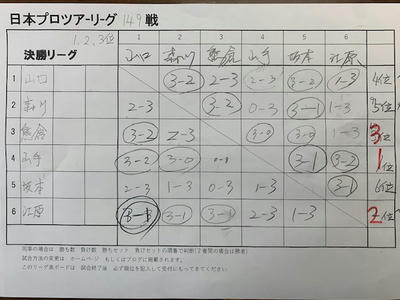 日本プロツアーリーグ 149 戦
1, 2, 3位
決勝リーグ 1 2 3 4 5 6
山口 森川 山手 坂本 江原
1 山口 3-2 2-3 2-3 3-2 1-3 4位
2 森川 2-3 3-2 0-3 3-1 1-3 5位
3 3-2 2-3 3-0 3-0 1-3 3位
4 山手 3-2 3-0 3-1 3-2 1位
5 坂本 2-3 1-3 0-3 1-3 3-1 6位
6 江原 3-1 3-1 3-1 2-3 1-3 2位
同率の場合は 勝ち数 負け数 勝ちセット 負けセットの順番で判断(2者間の場合は勝者)
試合方法の変更は ホームページ もしくはブログに掲載します。
このリーグ表ボードは 試合終了後 必ず順位を記入して受付にもってきてください